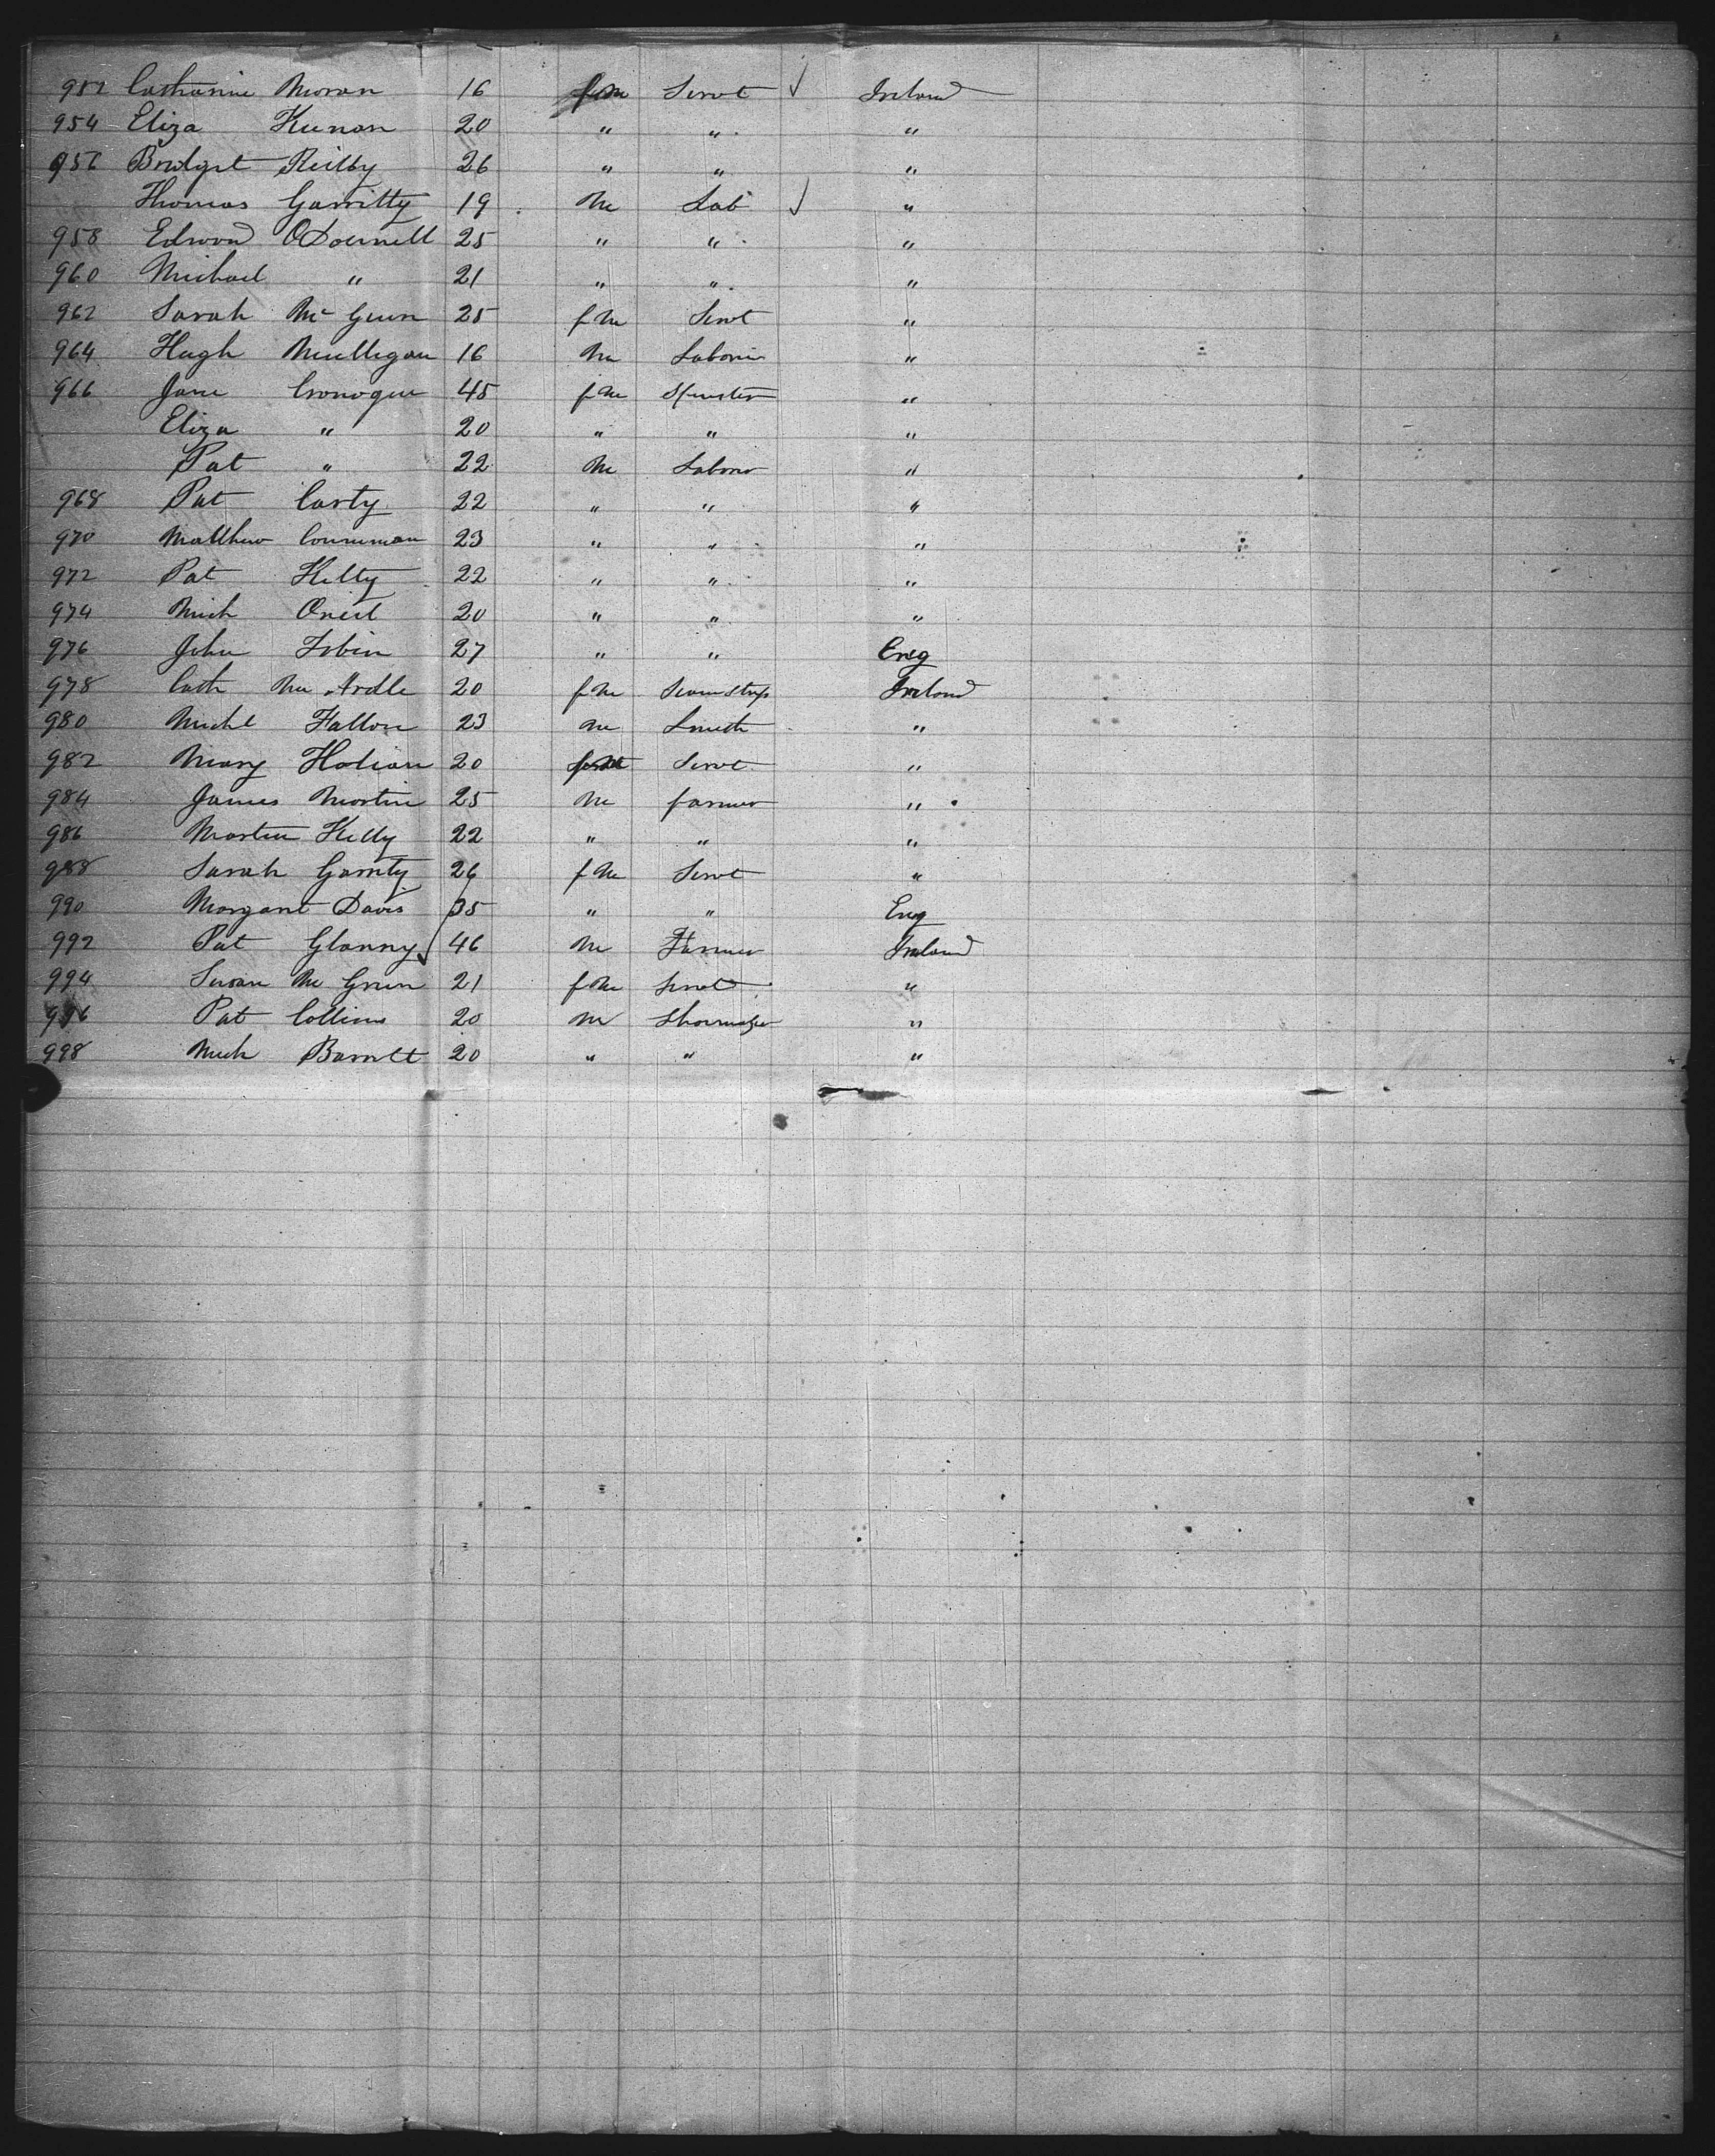 952 Catharine Moran 16 fm Servt Ireland
954 Eliza Keenan 20 " " "
956 Bridget Reilly 26 " " "
Thomas Garritty 19 M Lab "
958 Edward O'Donnell 25 " " "
960 Michael " 21 " " "
962 Sarah Mc 25 fm Servt "
964 Hugh Mulligan 16 M Laborer "
966 Jane Cronogue 45 fm Spinster "
Eliza " 20 " " "
Pat " 22 M Labour "
968 Pat Carty 22 " " "
970 Matthew 23 " " "
972 Pat Kelty 22 " " "
974 Mich Oneil 20 " " "
976 John Tobin 27 " " Eng
978 Cath Mc Ardle 20 fm Seamstrss Ireland
980 Michl Fallon 23 M Smith "
982 Mary Holian 20 Servt "
984 James Martin 25 M farmer "
986 Martin Kelly 22 " " "
988 Sarah Garrity 26 fm Servt "
990 Margaret Davis 35 " " Eng
992 Pat Glanny 46 M Farmer Ireland
994 Susan Mc 21 fm Servt "
996 Pat Collins 20 M Shoemaker "
998 Mich Barrett 20 " " "